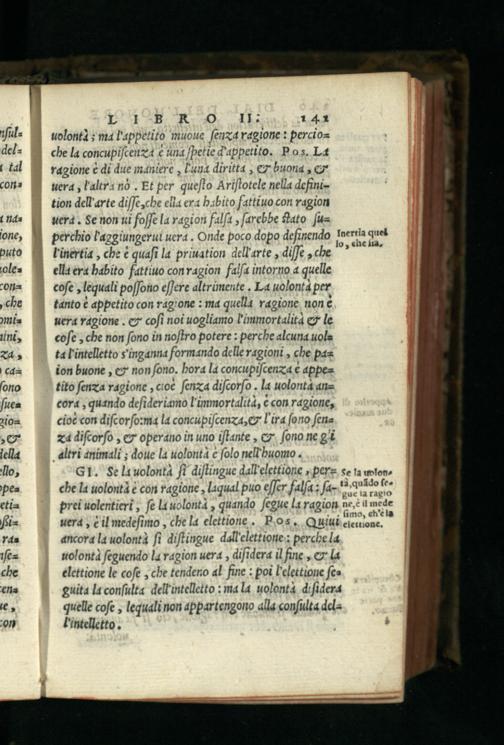 LIBRO II. 141
uolontà; ma l'appetito muoue senza ragione: percio=
che la concupiscenza è una spetie d'appetito. Pos. La
ragione è di due maniere, l'una diritta, & buona, &
uera, l'altra nò. Et per questo Aristotele nella defini=
tion dell'arte disse, che ella era habito fattiuo con ragion
uera. Se non ui fosse la ragion falsa, sarebbe stato su=
perchio l'aggiungerui uera. Onde poco dopo definendo
l'inertia, che è quasi la priuation dell'arte, disse, che
ella era habito fattiuo con ragion falsa intorno a quelle
cose, lequali possono essere altrimente. La uolontà per
tanto è appetito con ragione: ma quella ragione non è
uera ragione. & cosi noi uogliamo l'immortalità & le
cose, che non sono in nostro potere: perche alcuna uol=
ta l'intelletto s'inganna formando delle ragioni, che pa=
ion buone, & non sono. hora la concupiscenza è appe=
tito senza ragione, cioè senza discorso. la uolontà an=
cora, quando desideriamo l'immortalità, è con ragione,
cioè con discorso: ma la concupiscenza, & l'ira sono sen=
za discorso, & operano in uno istante, & sono ne gli
altri animali; doue la uolontà è solo nell'huomo.
GI. Se la uolontà si distingue dall'elettione, per=
che la uolontà è con ragione, laqual puo esser falsa: sa=
prei uolentieri, se la uolontà, quando segue la ragion
uera, è il medesimo, che la elettione. Pos. Quiui
ancora la uolontà si distingue dall'elettione: perche la
uolontà seguendo la ragion uera, disidera il fine, & la
elettione le cose, che tendeno al fine: poi l'elettione se=
guita la consulta dell'intelletto: ma la uolontà disidera
quelle cose, lequali non appartengono alla consulta del=
l'intelletto.
Inertia quel
lo, che sia.
Se la uolon=
tà, quãdo se=
gue la ragio
ne, è il mede
simo, ch'è la
elettione.